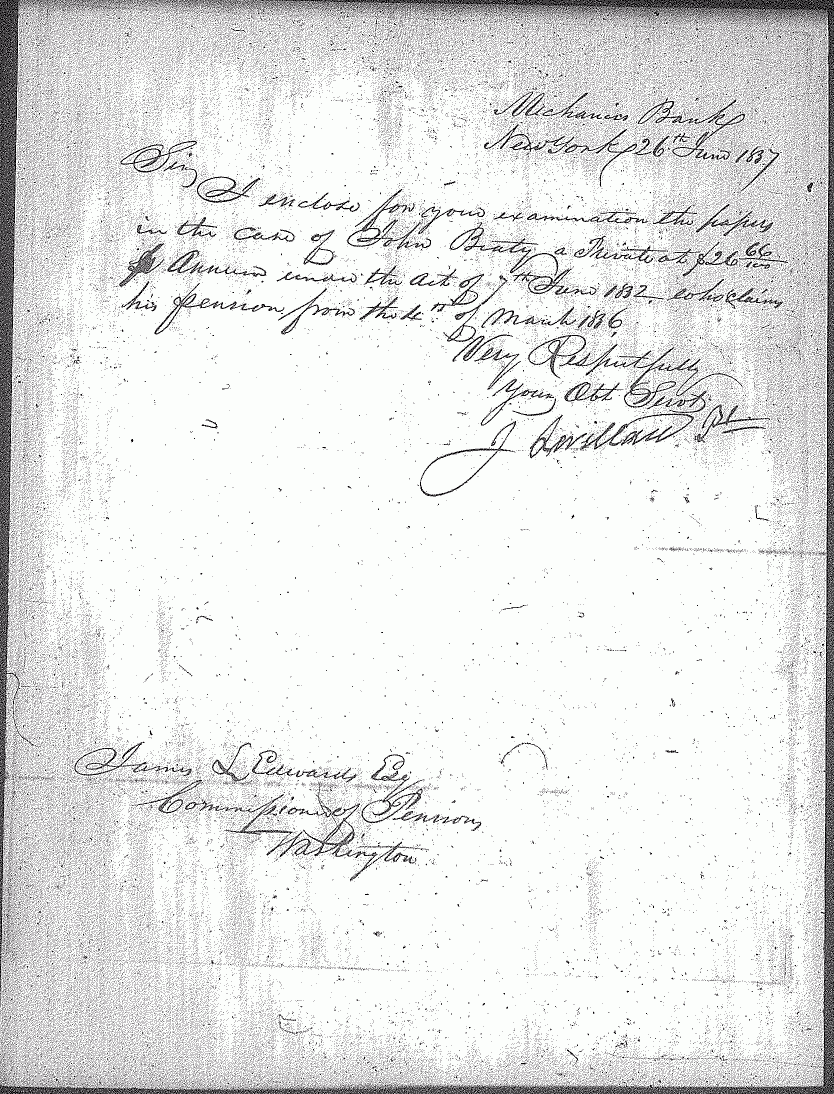 Mechanics Bank
New York 26th June 1837
Sir,
I enclose for your examination the papers
in the case of John Beaty a Private at $26 66/100
pr Annum under the Act of 7th June 1832 who claims
his pension from the 4th of March 1836
Very Respectfully
Your Obt Servt
J
James L Edwards Esq
Commissioner of Pensions
Washington